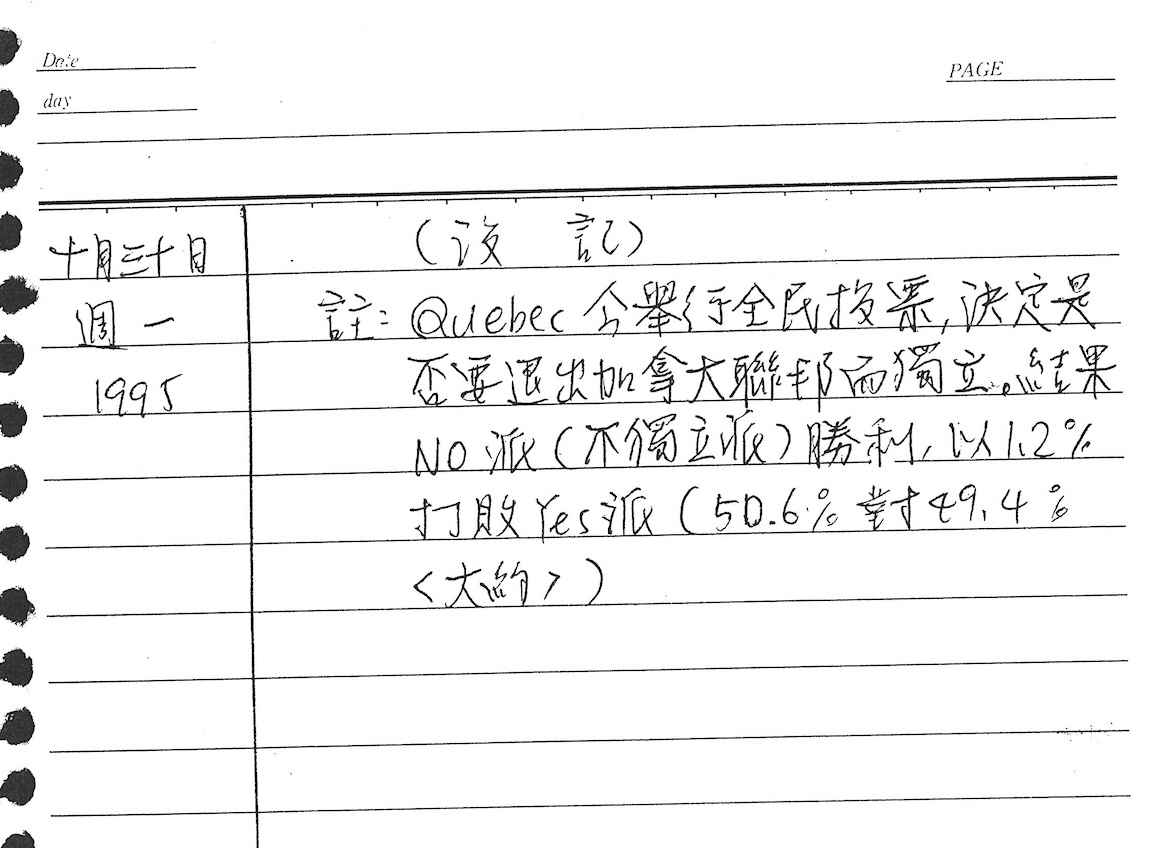 Date
PAGE
day
十月三十日
(沒 記)
週一
註: Quebec 今舉行全民投票, 決定是
1995
否要退出加拿大聯邦而獨立。結果
NO 派(不獨立派)勝利, 以1.2%
打敗Yes派 (50.6% 對49.4%
<大約>)